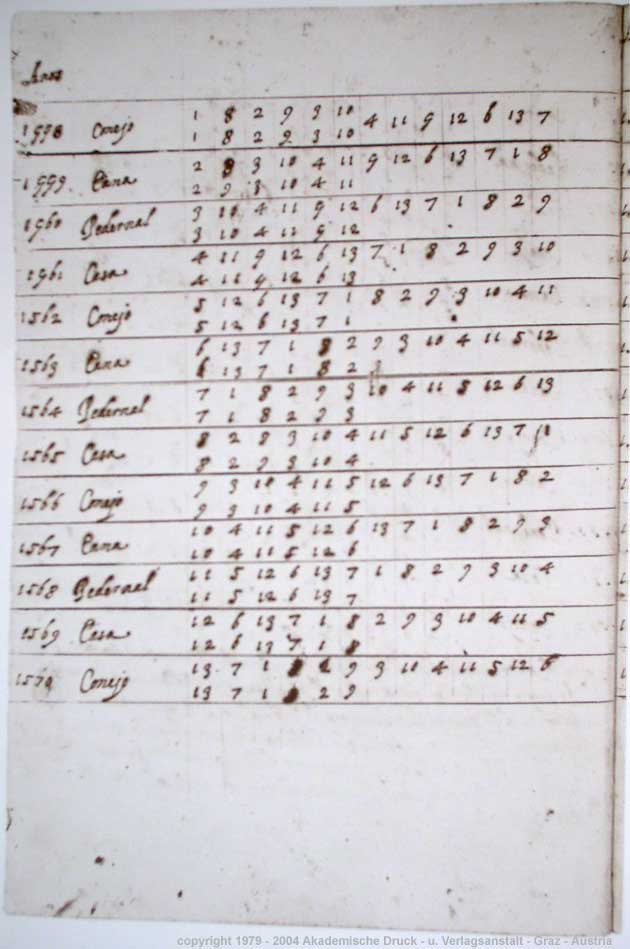 Anos
1 8 2 9 3 10 4 11 5 12 6 13 7
1558 Conejo
1 8 2 9 3 10
2 9 3 10 4 11 5 12 6 13 7 1 8
1559 Cana
2 9 3 10 4 11
3 10 4 11 5 12 6 13 7 1 8 2 9
1560 Pedernal
3 10 4 11 5 12
4 11 5 12 6 13 7 1 8 2 9 3 10
1561 Casa
4 11 5 12 6 13
5 12 6 13 7 1 8 2 9 3 10 4 11
1562 Conejo
5 12 6 13 7 1
6 13 7 1 8 2 9 3 10 4 11 5 12
1563 Cana
6 13 7 1 8 2
7 1 8 2 9 3 10 4 11 5 12 6 13
1564 Pedernal
7 1 8 2 9 3
8 2 9 3 10 4 11 5 12 6 13 7 1
1565 Casa
8 2 9 3 10 4
9 3 10 4 11 5 12 6 13 7 1 8 2
1566 Conejo
9 3 10 4 11 5
10 4 11 5 12 6 13 7 1 8 2 9 3
1567 Cana
10 4 11 5 12 6
11 5 12 6 13 7 1 8 2 9 3 10 4
1568 Pedernal
11 5 12 6 13 7
12 6 13 7 1 8 2 9 3 10 4 11 5
1569 Casa
12 6 13 7 1 8
13 7 1 8 2 9 3 10 4 11 5 12 6
1570 Conejo
13 7 1 8 2 9
copyright 1979 - 2004 Akademische Druck - u. Verlagsanstalt - Graz - Austria